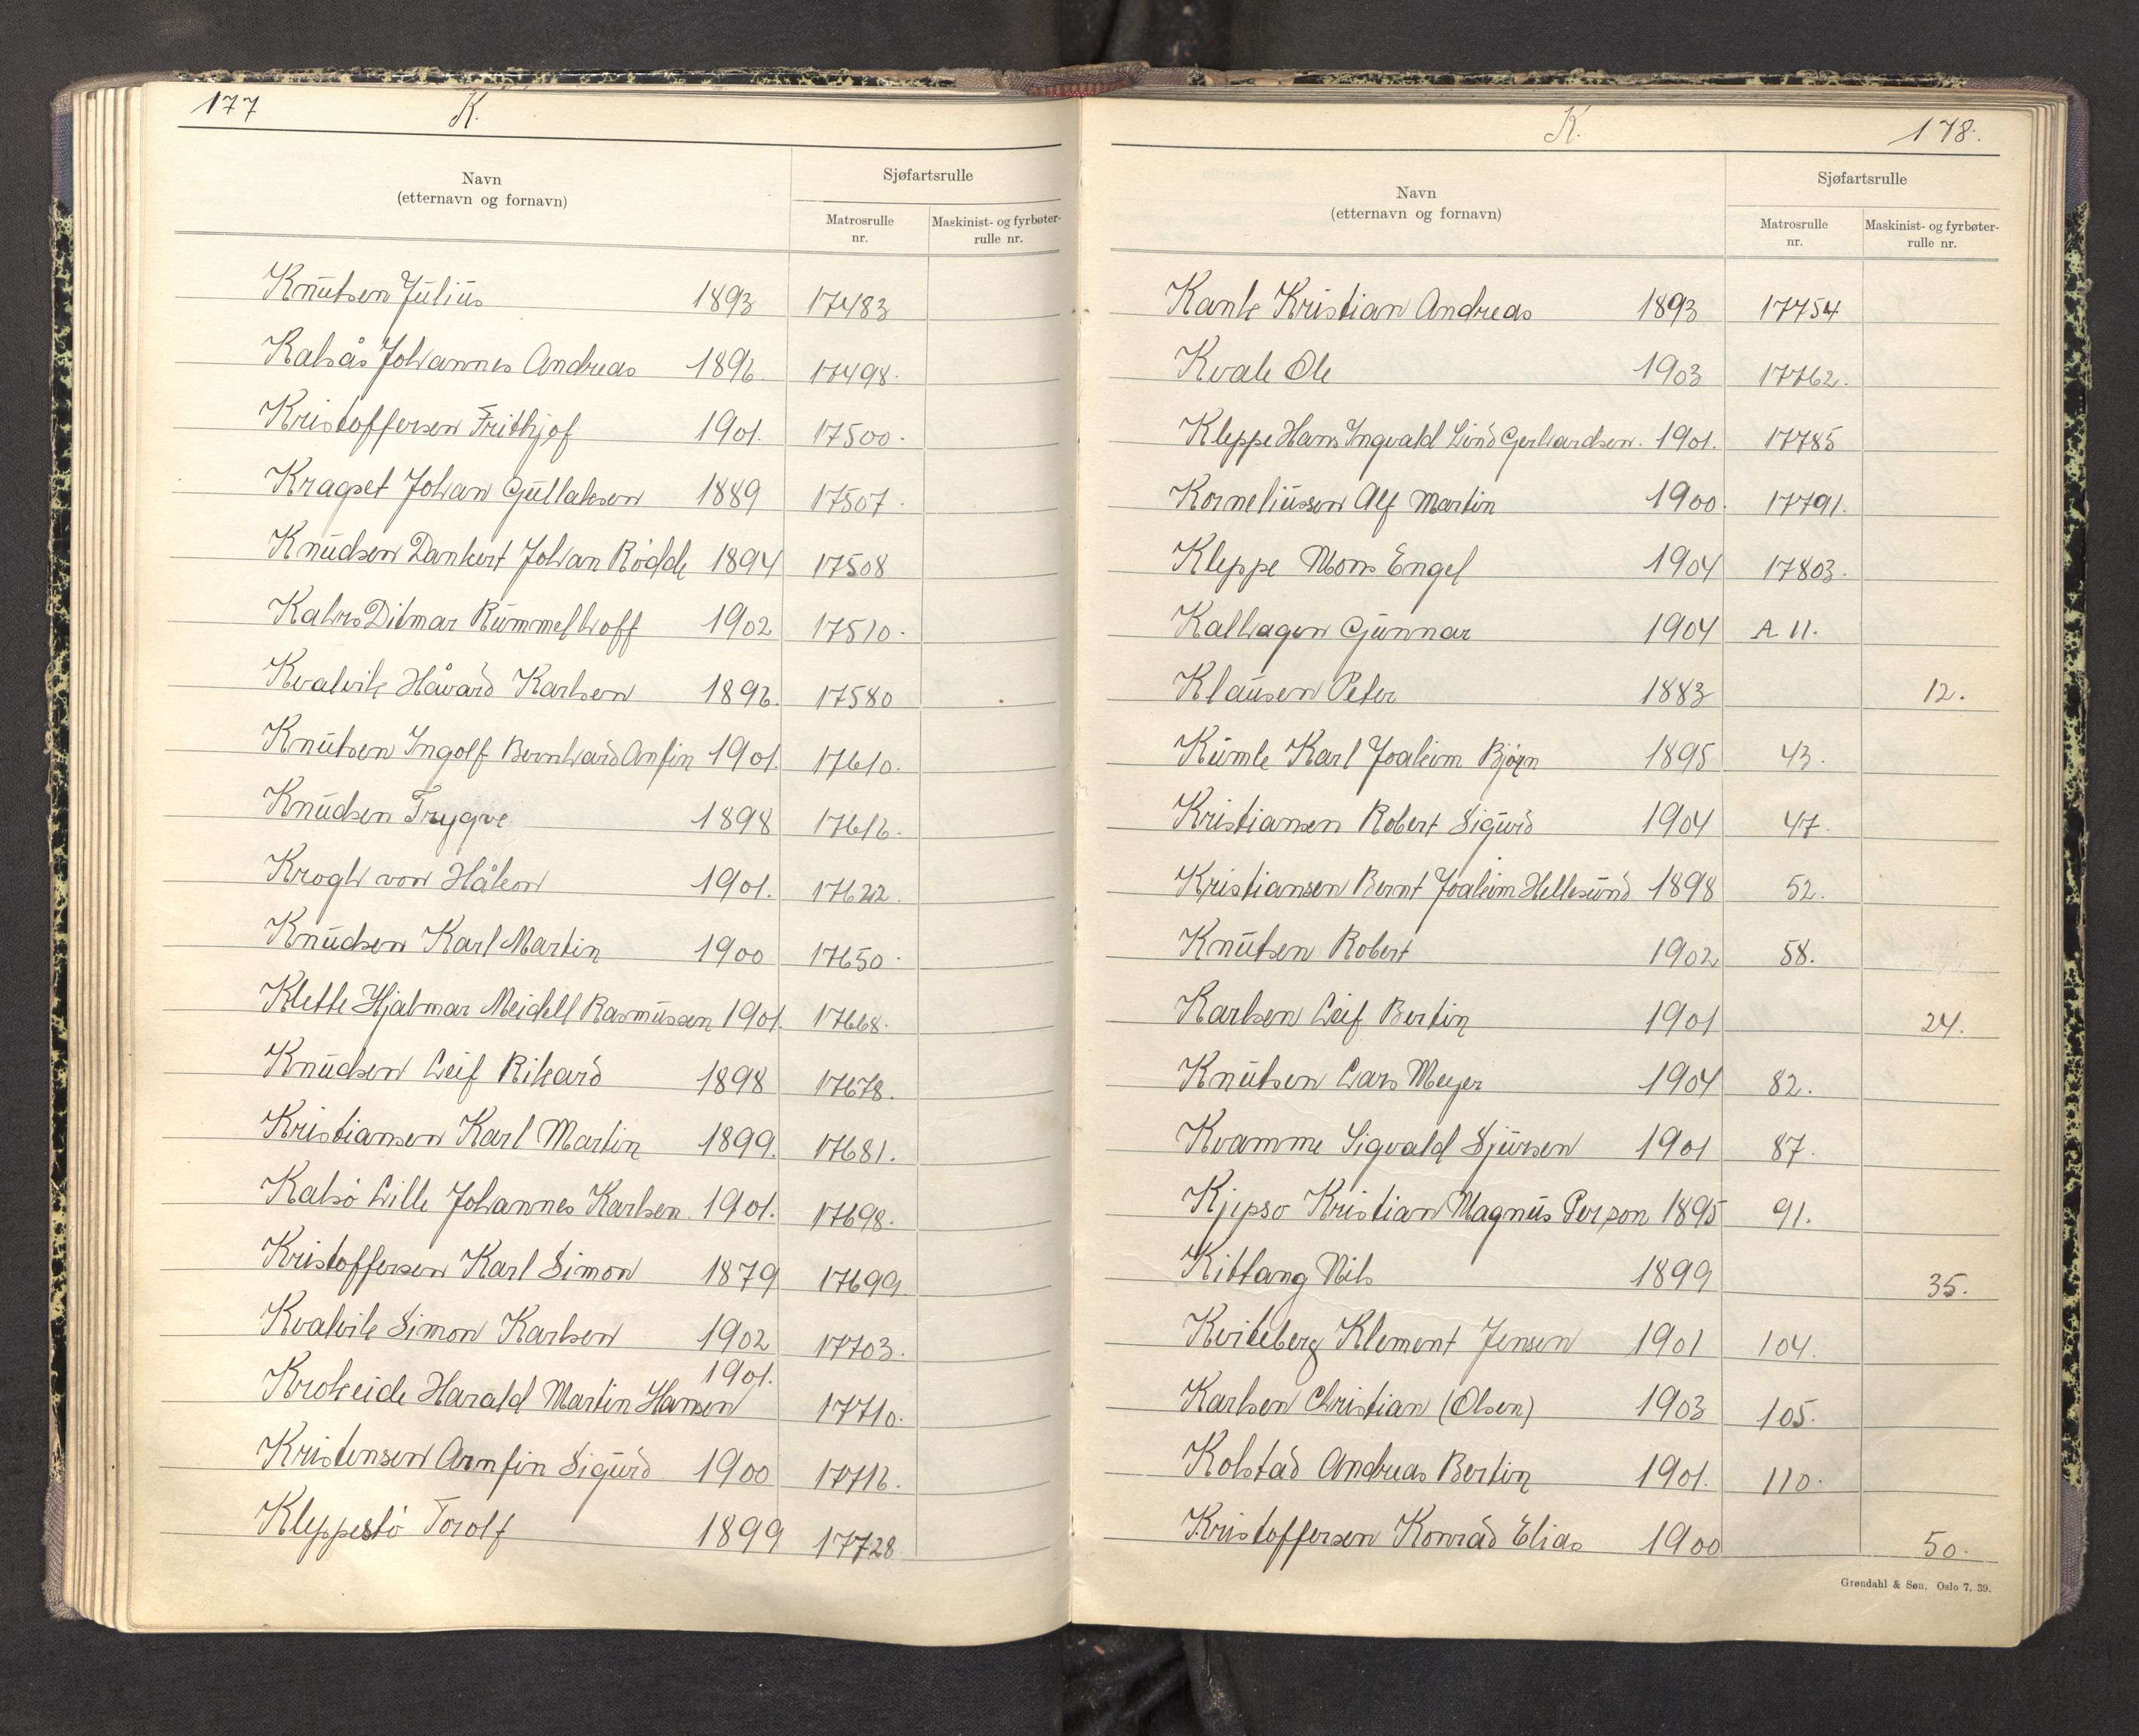 177
K.
Navn
(etternavn og fornavn)
Sjøfartsrulle
Matrosrulle nr.
Maskinist- og fyrbøter-rulle nr.
Knutsen Julius 1893 17483
Kalsås Johannes Andreas 1896. 17498.
Kristoffersen Frithjof 1901. 17500.
Kragset Johan Gullaksen 1889 17507.
Knudsen Dankert Johan Rødde 1894 17508
Kahrs Ditmar Rummelhoff 1902 17510.
Kvalvik Håvard Karlsen 1896. 17580
Knutsen Ingolf Bernhard Anfin 1901. 17610.
Knudsen Trygve 1898 17616.
Krogh von Håkon 1901. 17622.
Knudsen Karl Martin 1900 17650.
Klette Hjalmar Meidell Rasmussen 1901. 17668.
Knudsen Leif Rikard 1898 17678.
Kristiansen Karl Martin 1899. 17681.
Kalsø Lille Johannes Karlsen. 1901. 17698.
Kristoffersen Karl Simon 1879 17699.
Kvalvik Simon Karlsen 1902 17703.
Krokeide Harald Martin Hansen 1901. 17710.
Kristensen Arnfin Sigurd 1900 17716.
Kleppestø Torolf 1899 17728
K.
178.
Navn
(etternavn og fornavn)
Sjøfartsrulle
Matrosrulle nr.
Maskinist- og fyrbøter-rulle nr.
Kristian Andreas 1893 17754
Kvale Ole 1903 17762.
Kleppe Hans Ingvald Lind Gerhardsen. 1901. 17785
Korneliussen Alf Martin 1900. 17791.
Kleppe Mons Engel 1904 17803.
Kalhagen Gunnar 1904 A 11.
Klausen Peter 1883 12.
Kumle Karl Joakim Bjørn 1895 43.
Kristiansen Robert Sigurd 1904 47.
Kristiansen Bernt Joakim Hellesund 1898 52.
Knutsen Robert 1902 58.
Karlsen Leif Bertin 1901 24.
Knutsen Lars Meyer 1904 82.
Kvamme Sigvald Sjursen 1901 87.
Kjepso Kristian Magnus Person 1895 91.
Kittang Nils 1899 35.
Kviteberg Klement Jensen 1901 104.
Karlsen Christian (Olsen) 1903 105.
Kolstad Andreas Bertin 1901. 110.
Kristoffersen Konrad Elias 1900 50.
Grøndahl & Søn. Oslo 7. 39.